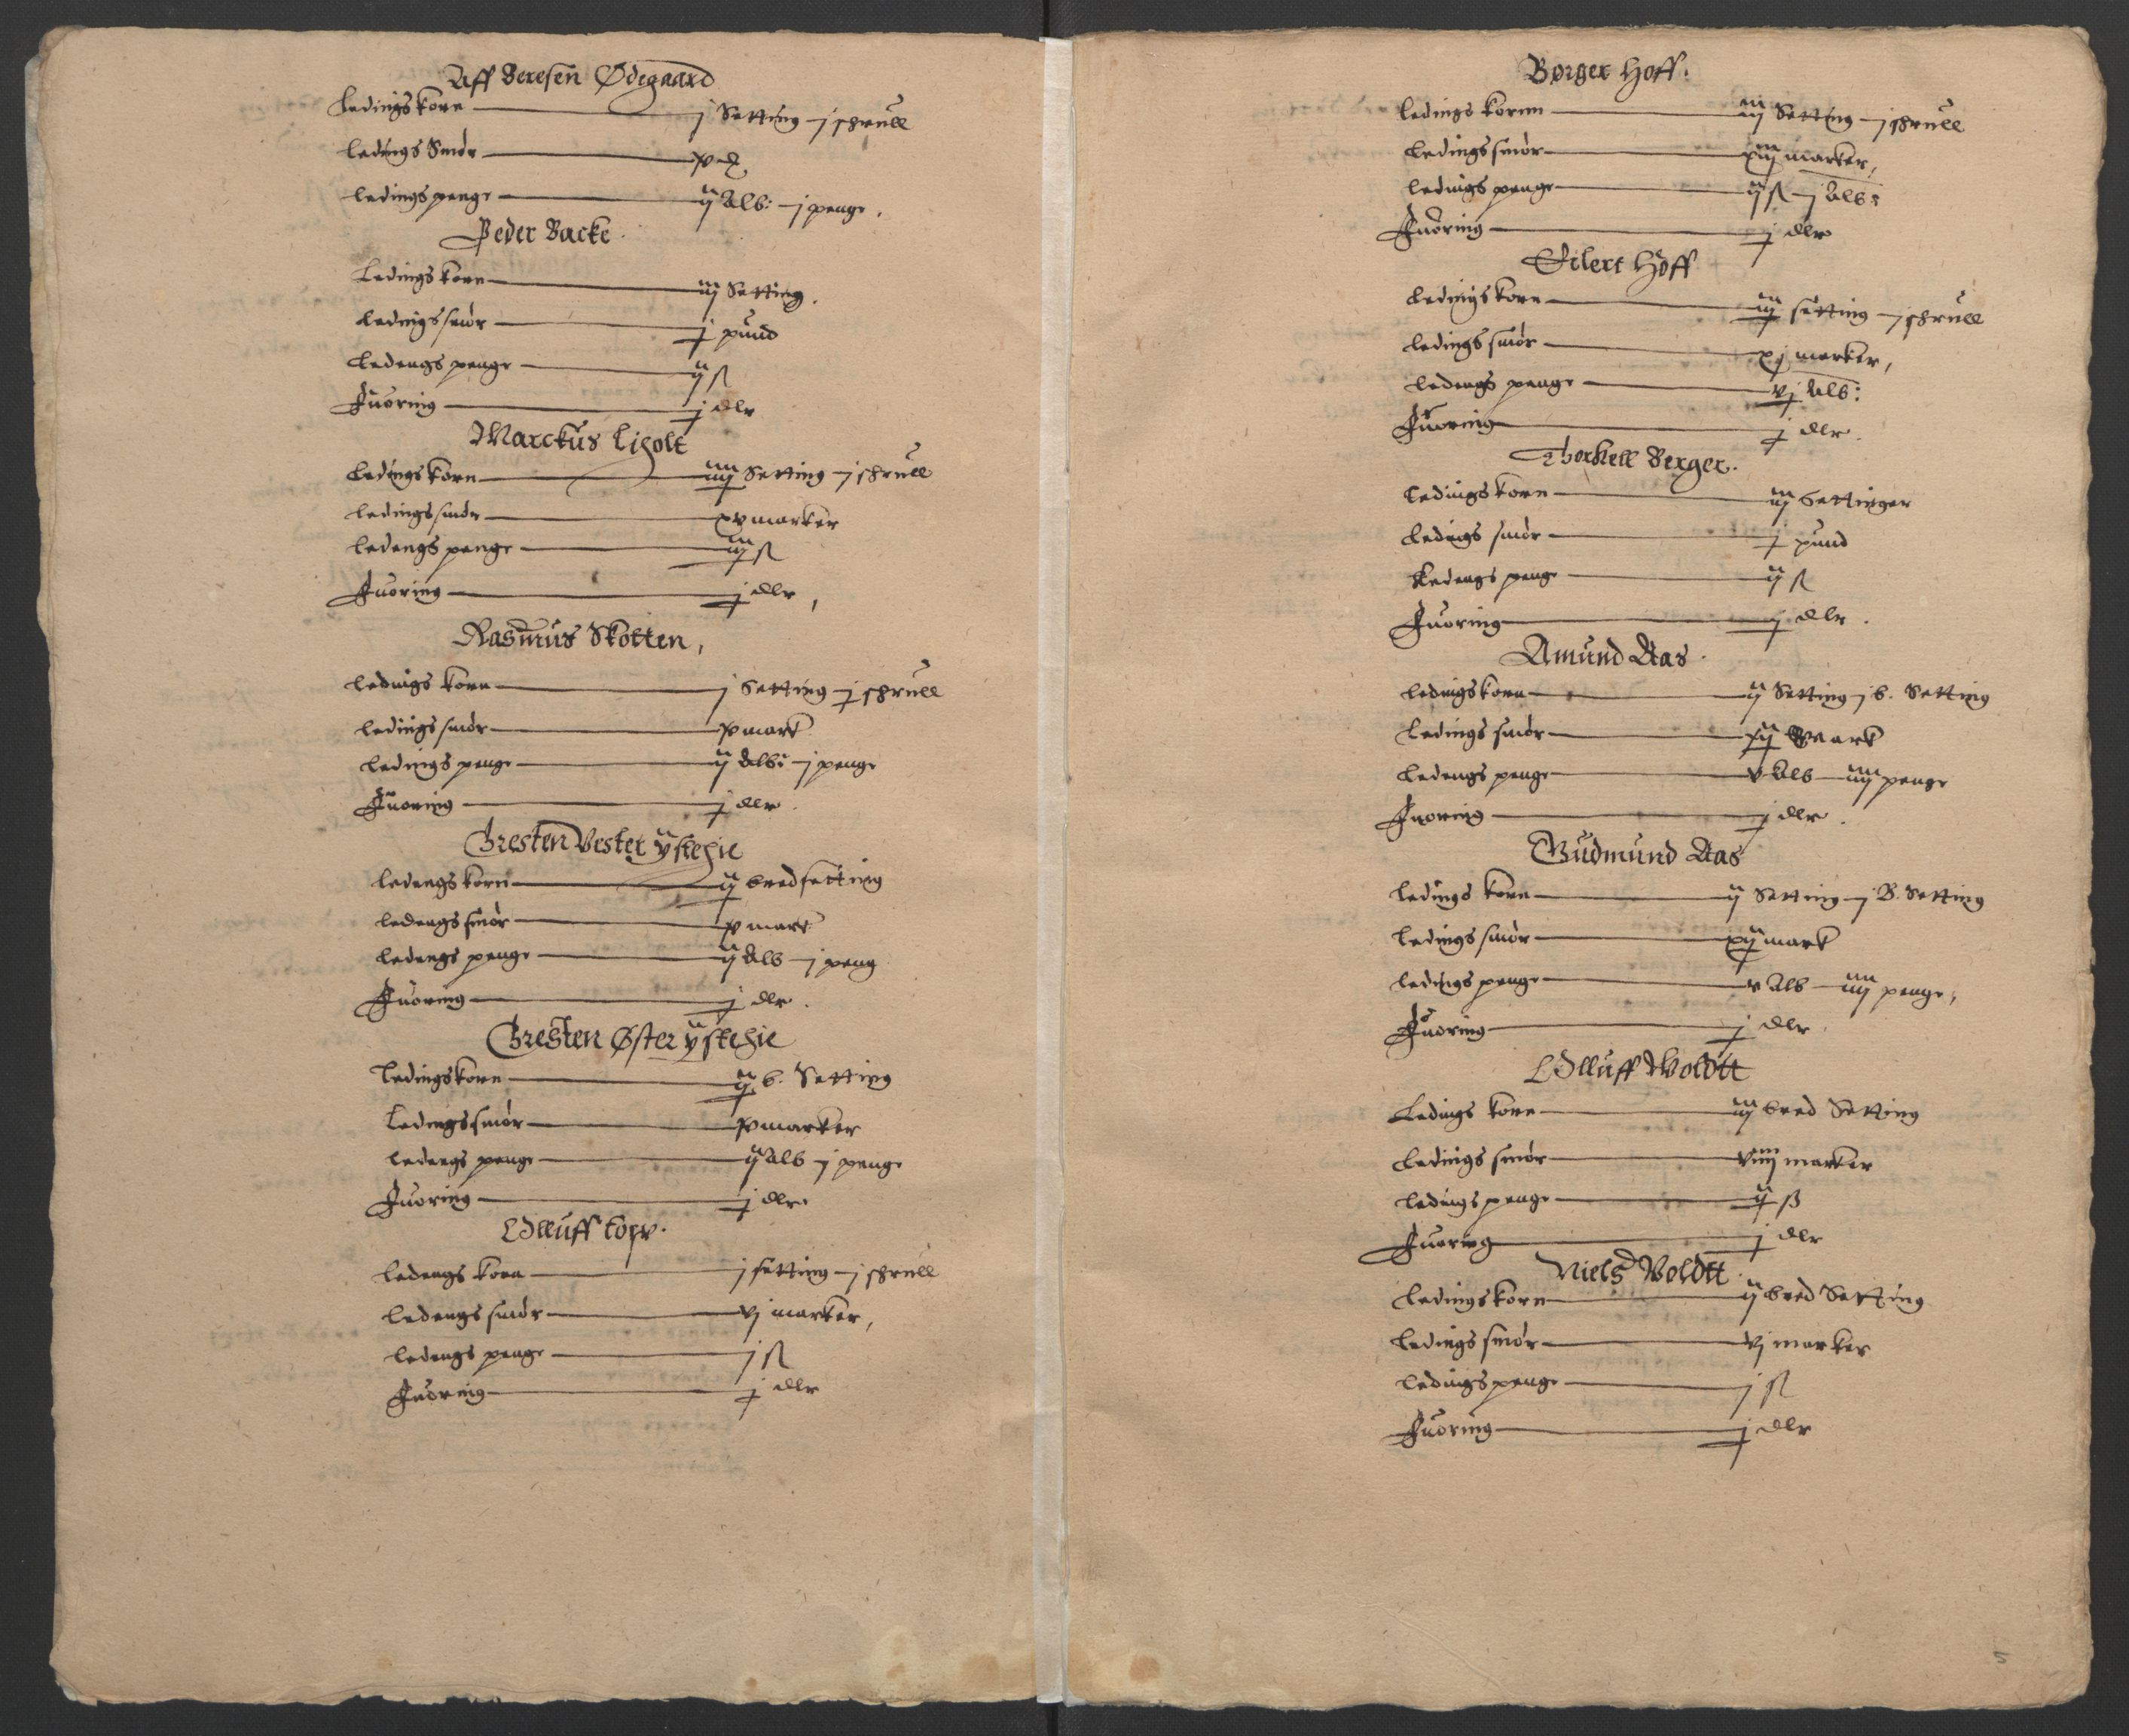 Aff Beresen Ødegaard
Ledingskorn j Setting j schrull
Ledings Smør xv
ledingspenge ij Alb: j penge.
Peder Backe.
Ledingskorn iij Setting.
ledingssmør j pund
ledengs penge ij ß
Fuoring j dlr
Marckus Ligolt
Ledings korn iiij Setting j schrull
ledingssmør xv marker
ledengs penge iij ß
Fuoring j dlr,
Rasmus Skotten,
ledings korn j Setting j schrull
ledingssmør xv mark
ledings penge ij Alb: j penge
Fuoring j dlr.
Gresten Vester
ledengs korn ij bredsetting
ledengs smør xv mark
ledengs penge ij Alb j peng
Fuoring j dlr.
Gresten Øster
Ledingskorn ij b. Setting
Ledingssmør xv marker
ledengs penge ij Alb j penge
Fuoring j dlr
Olluff Kopp.
ledengs korn j setting j schrull
ledengs smør vj marker,
ledengs penge j ß
Fuoring j dlr
Børger Hoff.
ledings kornn iij Setting j schrull
ledingssmør xiij marker,
ledings penge ij ß j Alb:
Fuoring j dlr
Eilert Hoff
ledingskorn iij setting j schrull
ledings smør xj marker,
ledengs penge vj Alb:
Fuoring j dlr.
Thorkell Berger.
ledings korn iij Settinger
ledings smør j pund
Ledengs penge ij ß
Fuoring j dlr.
Amund Aas.
ledingskorn ij Setting j b. Setting
ledings smør xij Mark
ledengs penge v Alb iiij penge
Fuoring j dlr.
Gudmund Aas
ledings korn ij Setting j B. Setting
ledings smør xij mark
ledings penge v Alb iiij penge,
Fuoring j dlr
Olluff Woldtt
Ledings korn iij bred Setting
ledings smør viiij marker
ledings penge ij ß
Fuoring j dlr
Niels Voldtt
ledingskorn ij bred Setting
ledings smør vj marker
ledings penge j ß
Fuoring j dlr
5